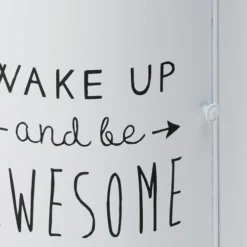 WAKE UP
and be
AWESOME